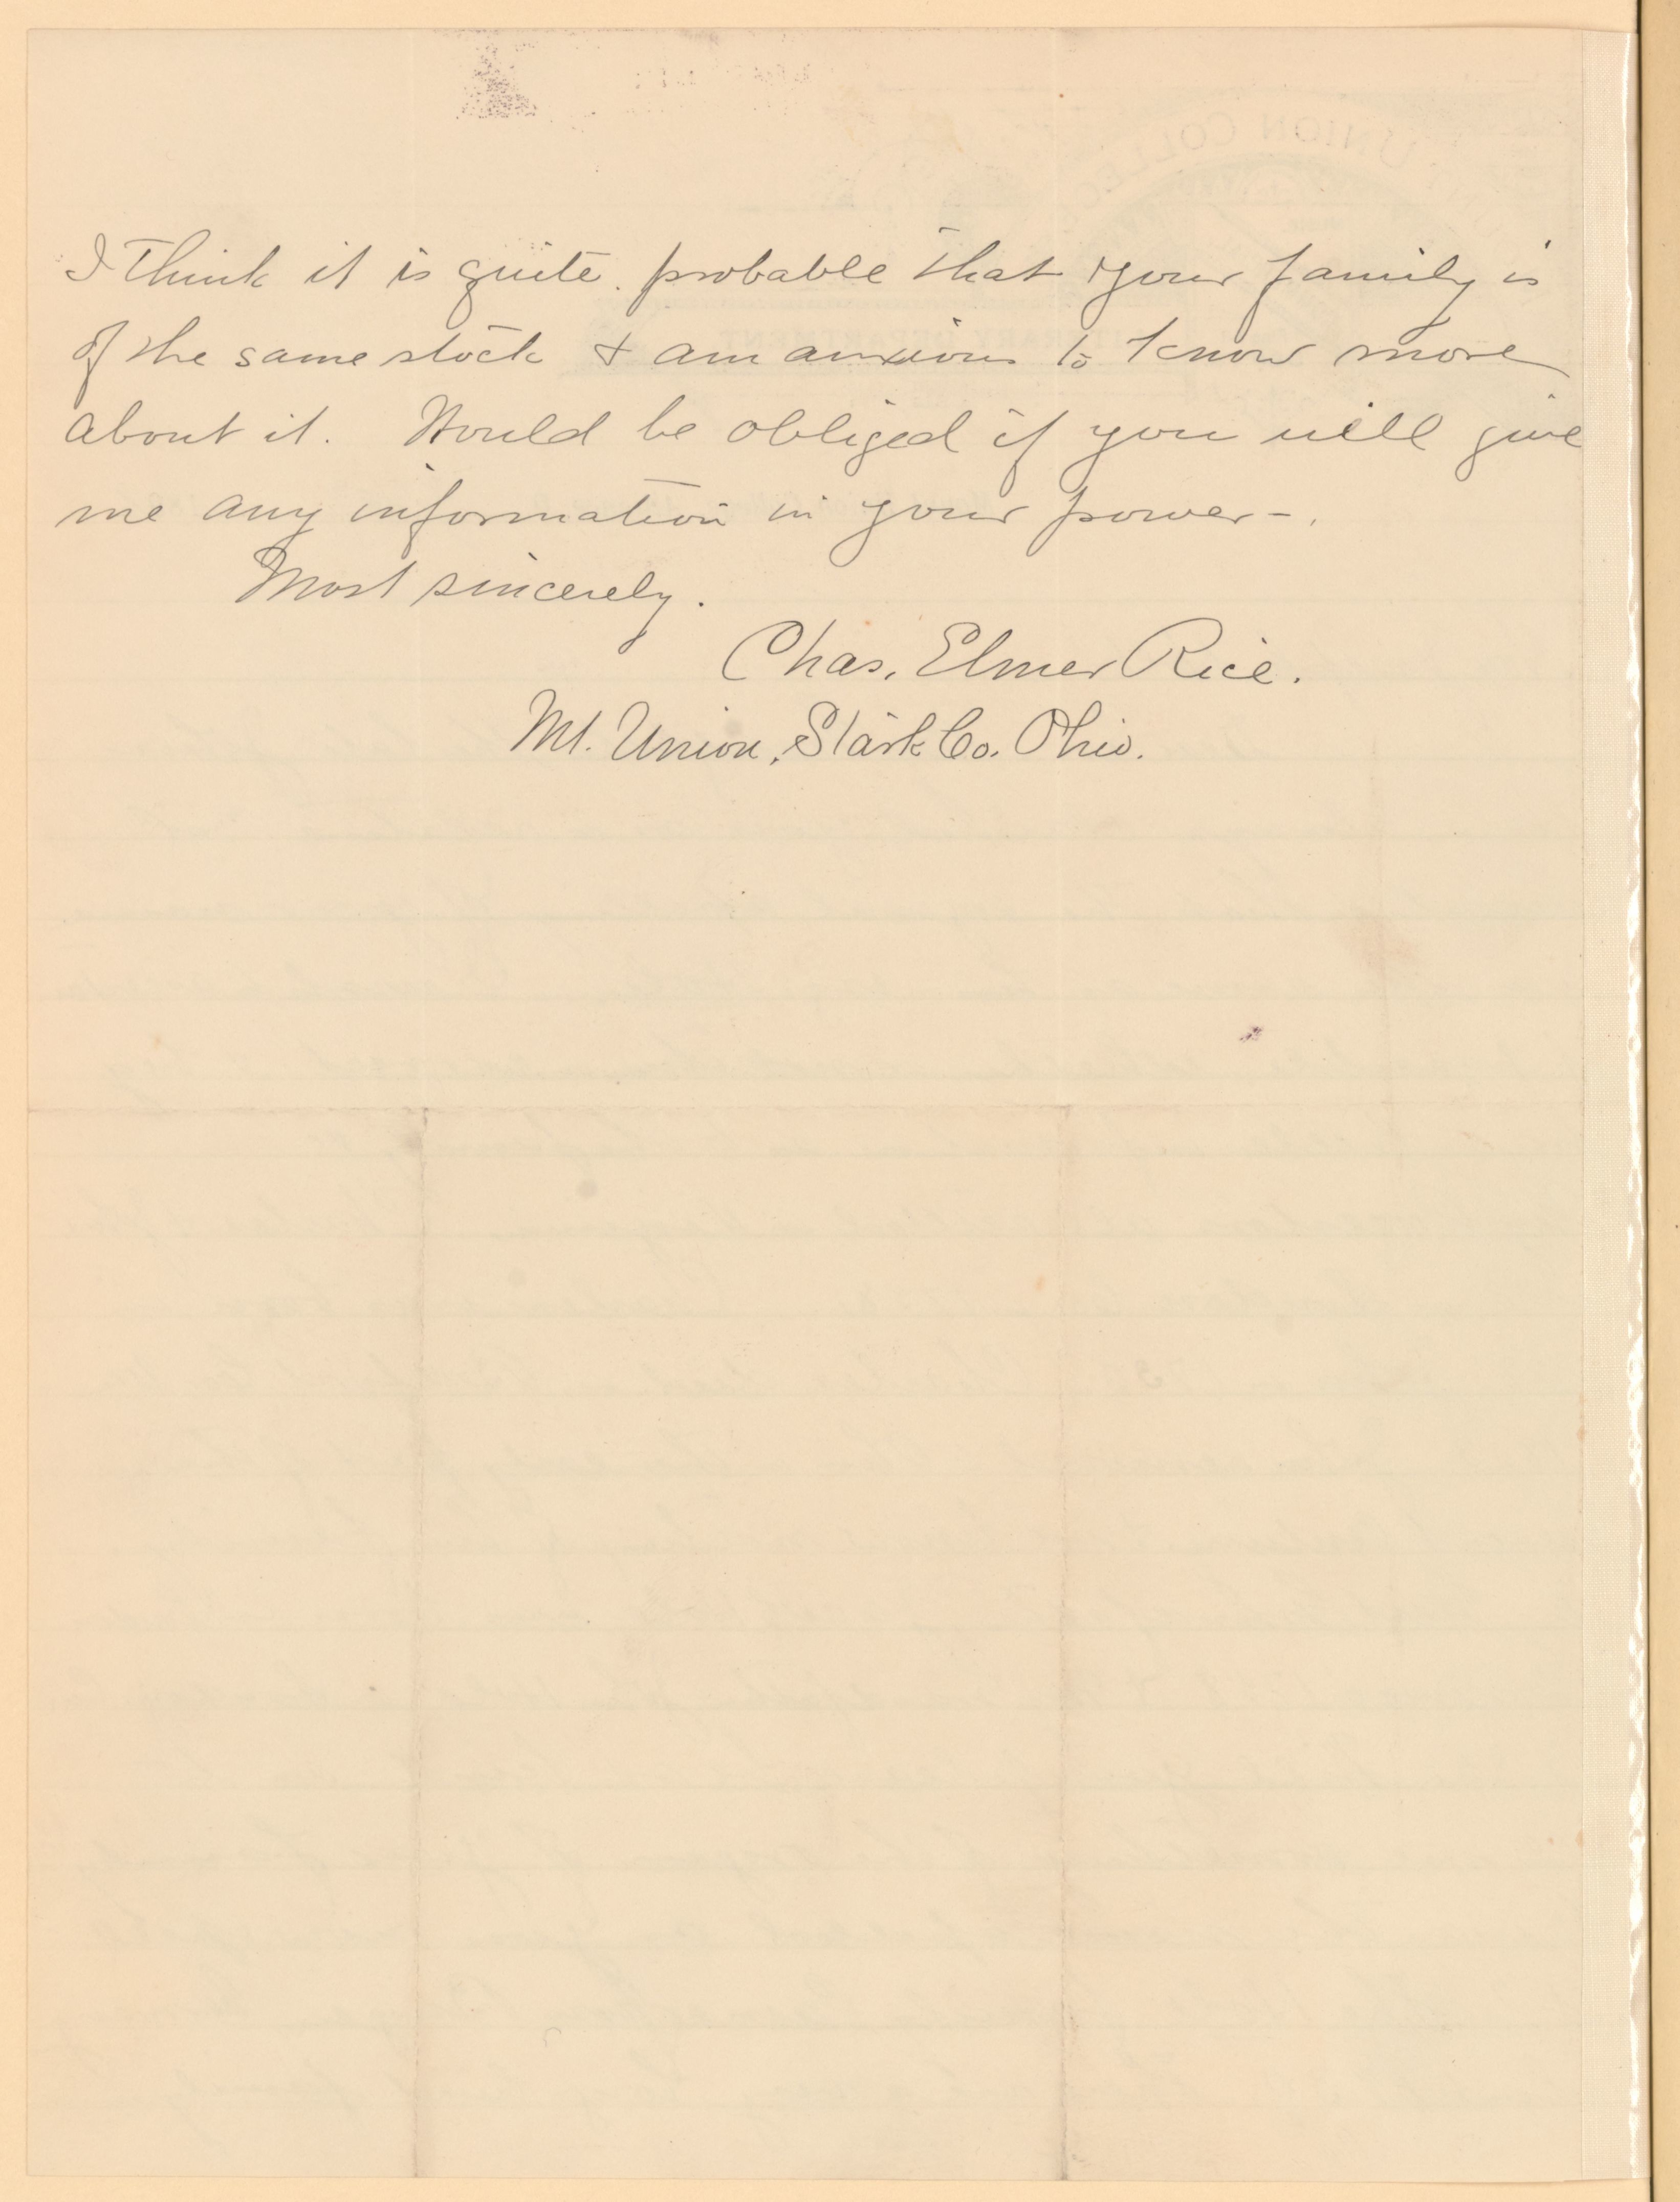 I think it is quite probable that your family is
of the same stock & am anxious to know more
about it. Would be obliged if you will give
me any information in your power-.
Most sincerely.
Chas. Elmer Rice.
Mt. Union, Stark Co. Ohio.